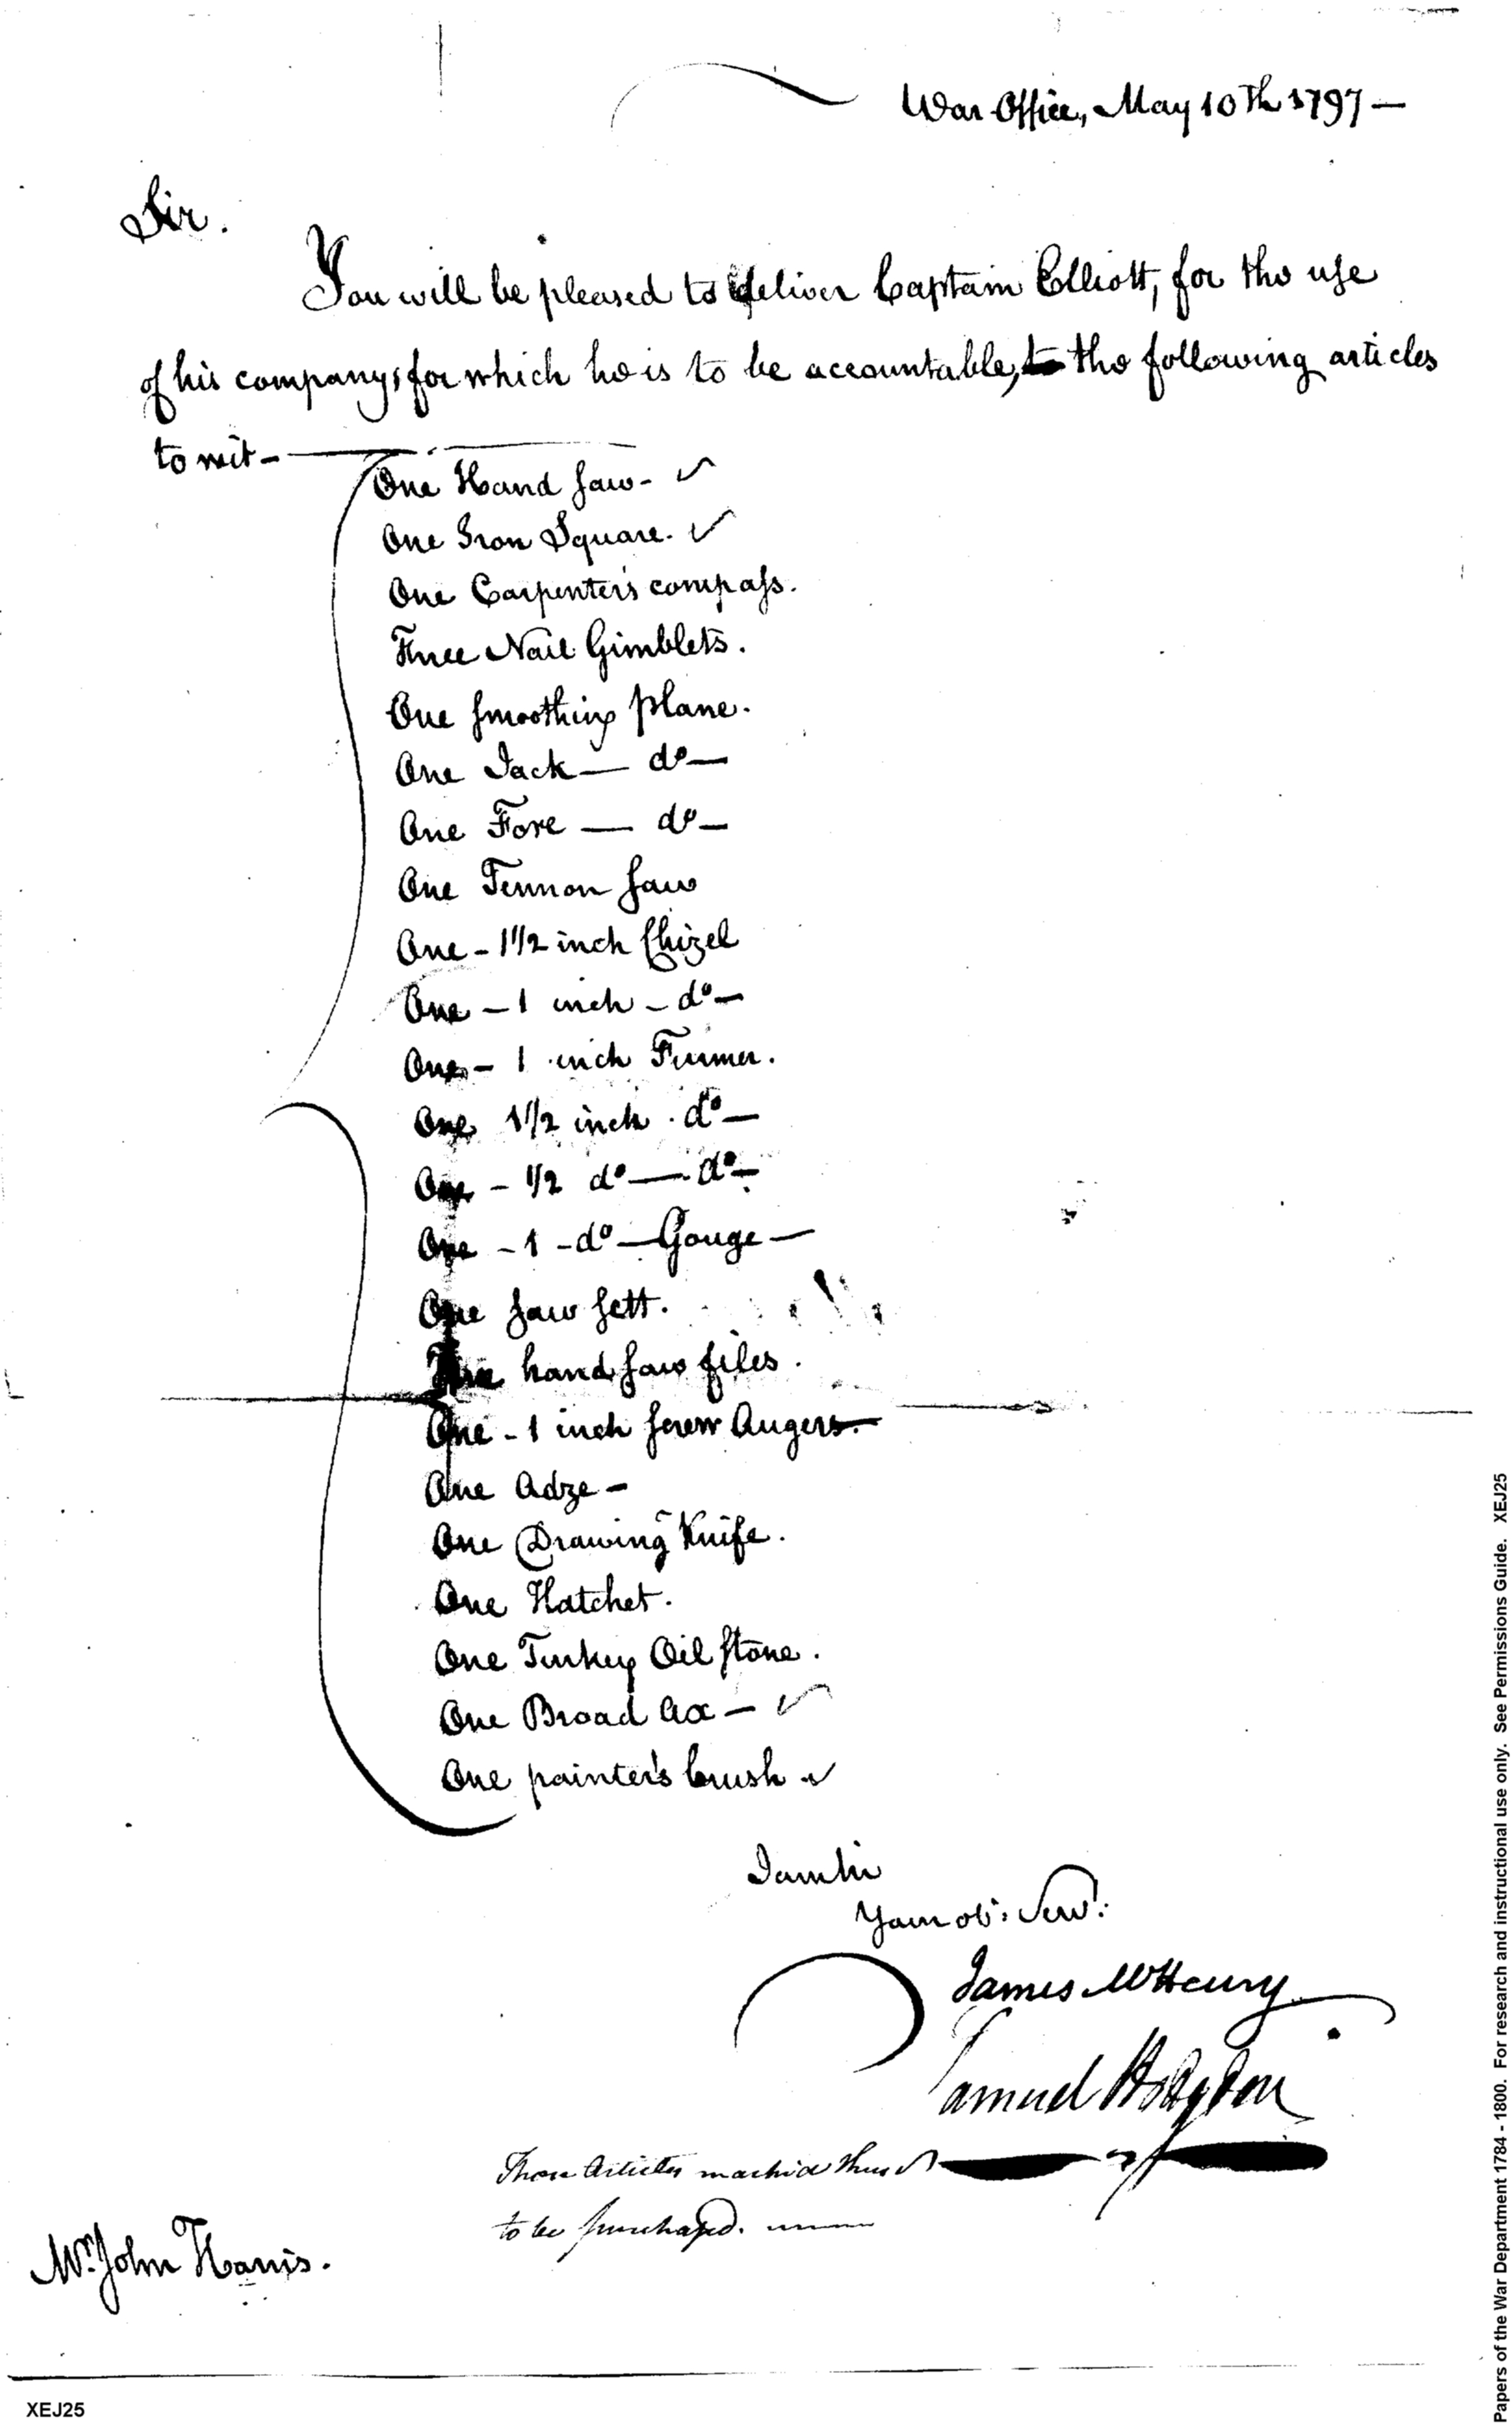 War Office, May 10th 1797—
Sir.
You will be pleased to deliver Captain Elliott, for the use
of his company, for which he is to be accountable, the following articles
to wit—
One Hand Saw- ✓
One Iron Square. ✓
One Carpenter's compass.
Three Nail Gimblets.
One smoothing plane.
One Jack— do—
One Fore — do—
One Tennon saw
One - 1 1/2 inch Chizel
One — 1 inch - do—
One - 1 inch Firmer.
One 1 1/2 inch . do—
One - 1/2 do — do—
One - 1 - do — Gouge —
One saw sett.
hand saw files.
One - 1 inch screw Auger
One Adze -
One Drawing Knife.
One Hatchet.
One Turkey Oil stone.
One Broad Ax — ✓
One painter's brush ✓
I am Sir
Your ob: Servt:
James McHenry
Samuel Hodgdon
Those Articles marked thus ✓
to be purchased.
Mr. John Harris.
Papers of the War Department 1784 - 1800. For research and instructional use only. See Permissions Guide. XEJ25
XEJ25